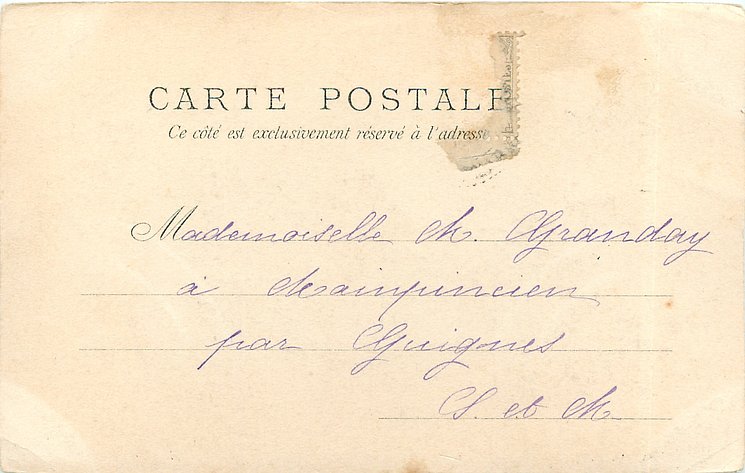 CARTE POSTALE
Ce côté est exclusivement réservé à l'adresse
Mademoiselle M. Granday
à Mainpincien
par Guignes
S. et M